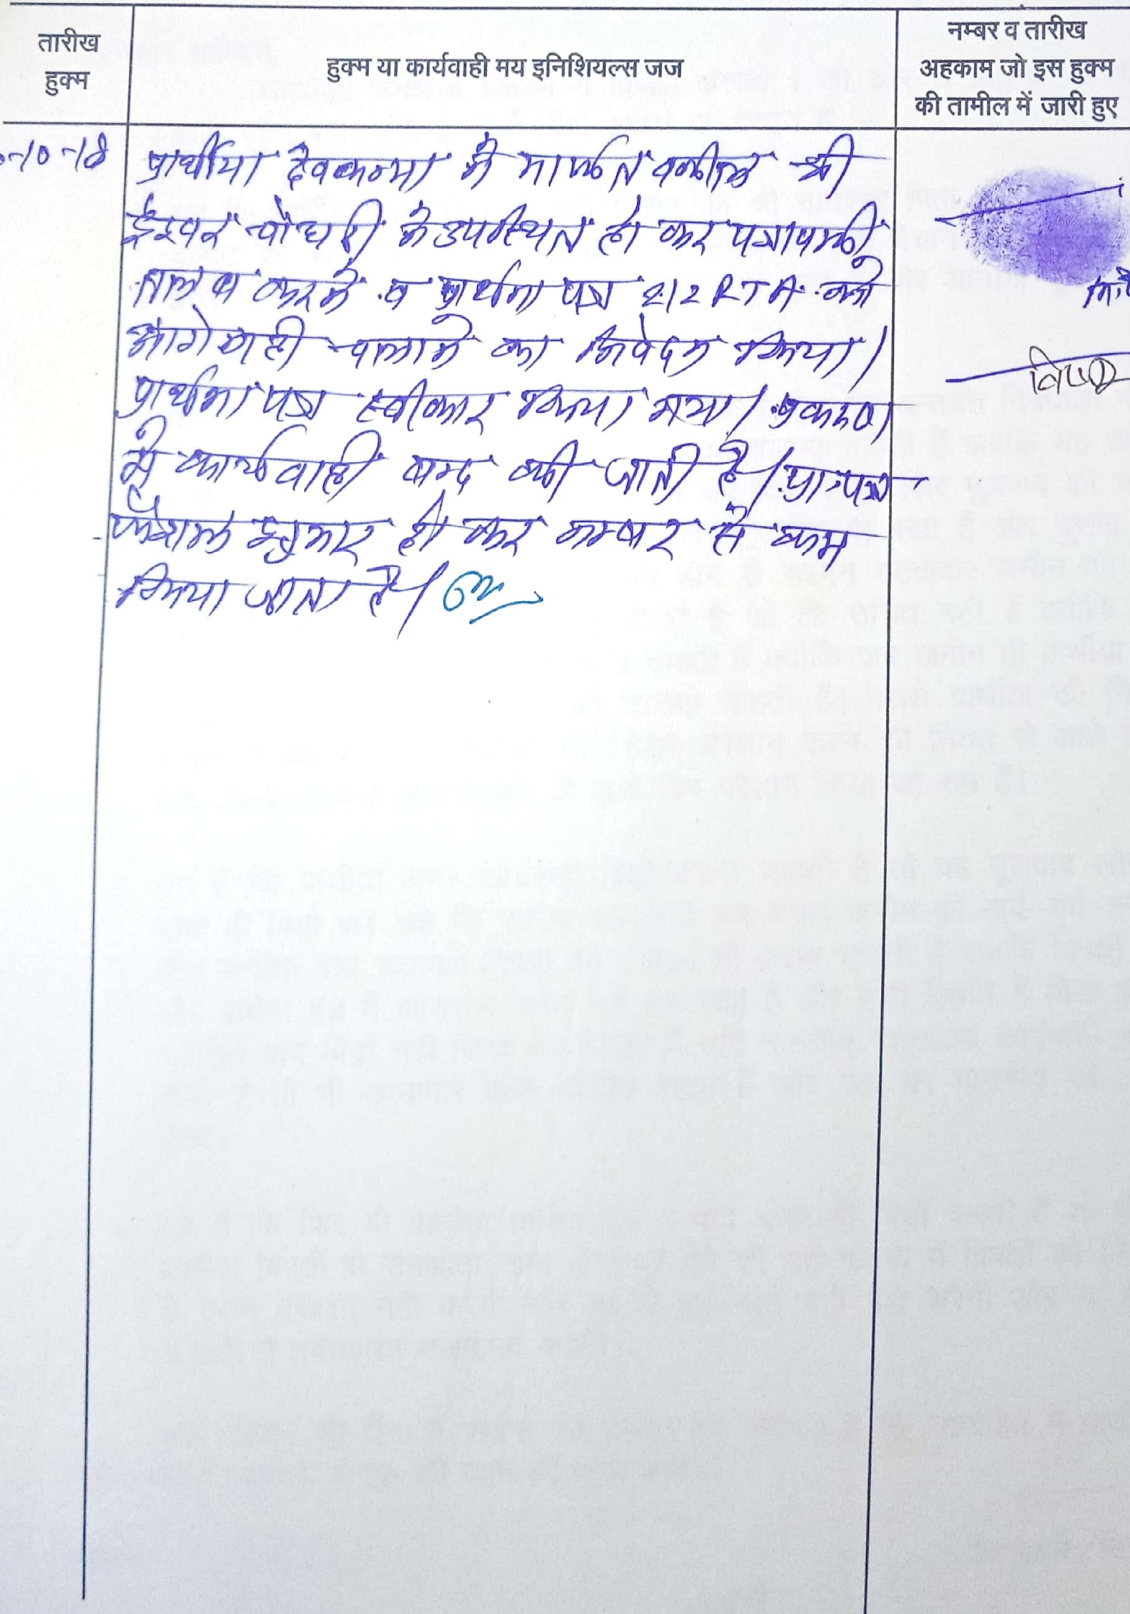 तारीख
हुक्म
हुक्म या कार्यवाही मय इनिशियल्स जज
नम्बर व तारीख
अहकाम जो इस हुक्म
की तामील में जारी हुए
-10-18
प्रार्थीया देवकन्या ने मार्फत वकील श्री
ईश्वर चौधरी के उपस्थित हो कर पत्रावली
तलब करने व प्रार्थना पत्र 212 RTA को
आगे नही चलाने का निवेदन किया।
प्रार्थना पत्र स्वीकार किया गया। प्रकरण
में कार्यवाही बन्द की जाती है। प्रा. पत्र
फैसल शुमार हो कर नम्बर से कम
किया जाता है।